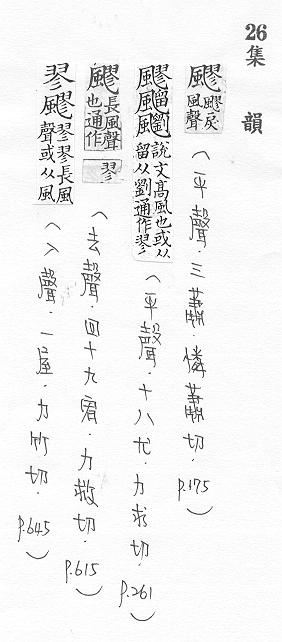 26集 韻
飂 飂戾風聲 (平聲.三蕭.憐蕭切.p.175)
飂飀飅 說文高風也或从留从劉通作翏 (平聲.十八尤.力求切.p.261)
飂 長風聲也通作翏 (去聲.四十九宥.力救切.p.615)
翏飂 翏翏長風聲或从風 (入聲.一屋.力竹切.p.645)